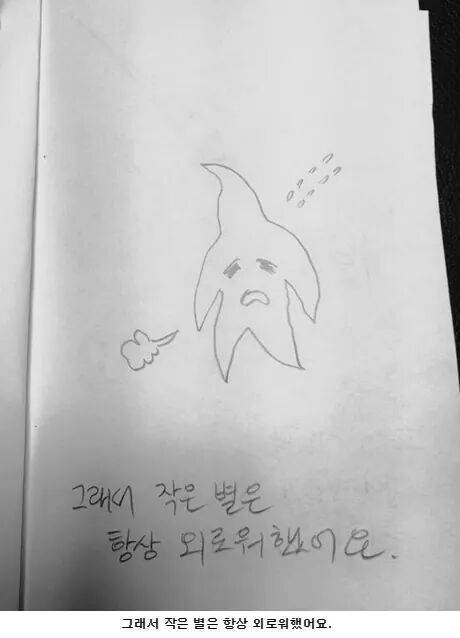 그래서 작은 별은
항상 외로워했어요.
그래서 작은 별은 항상 외로워했어요.